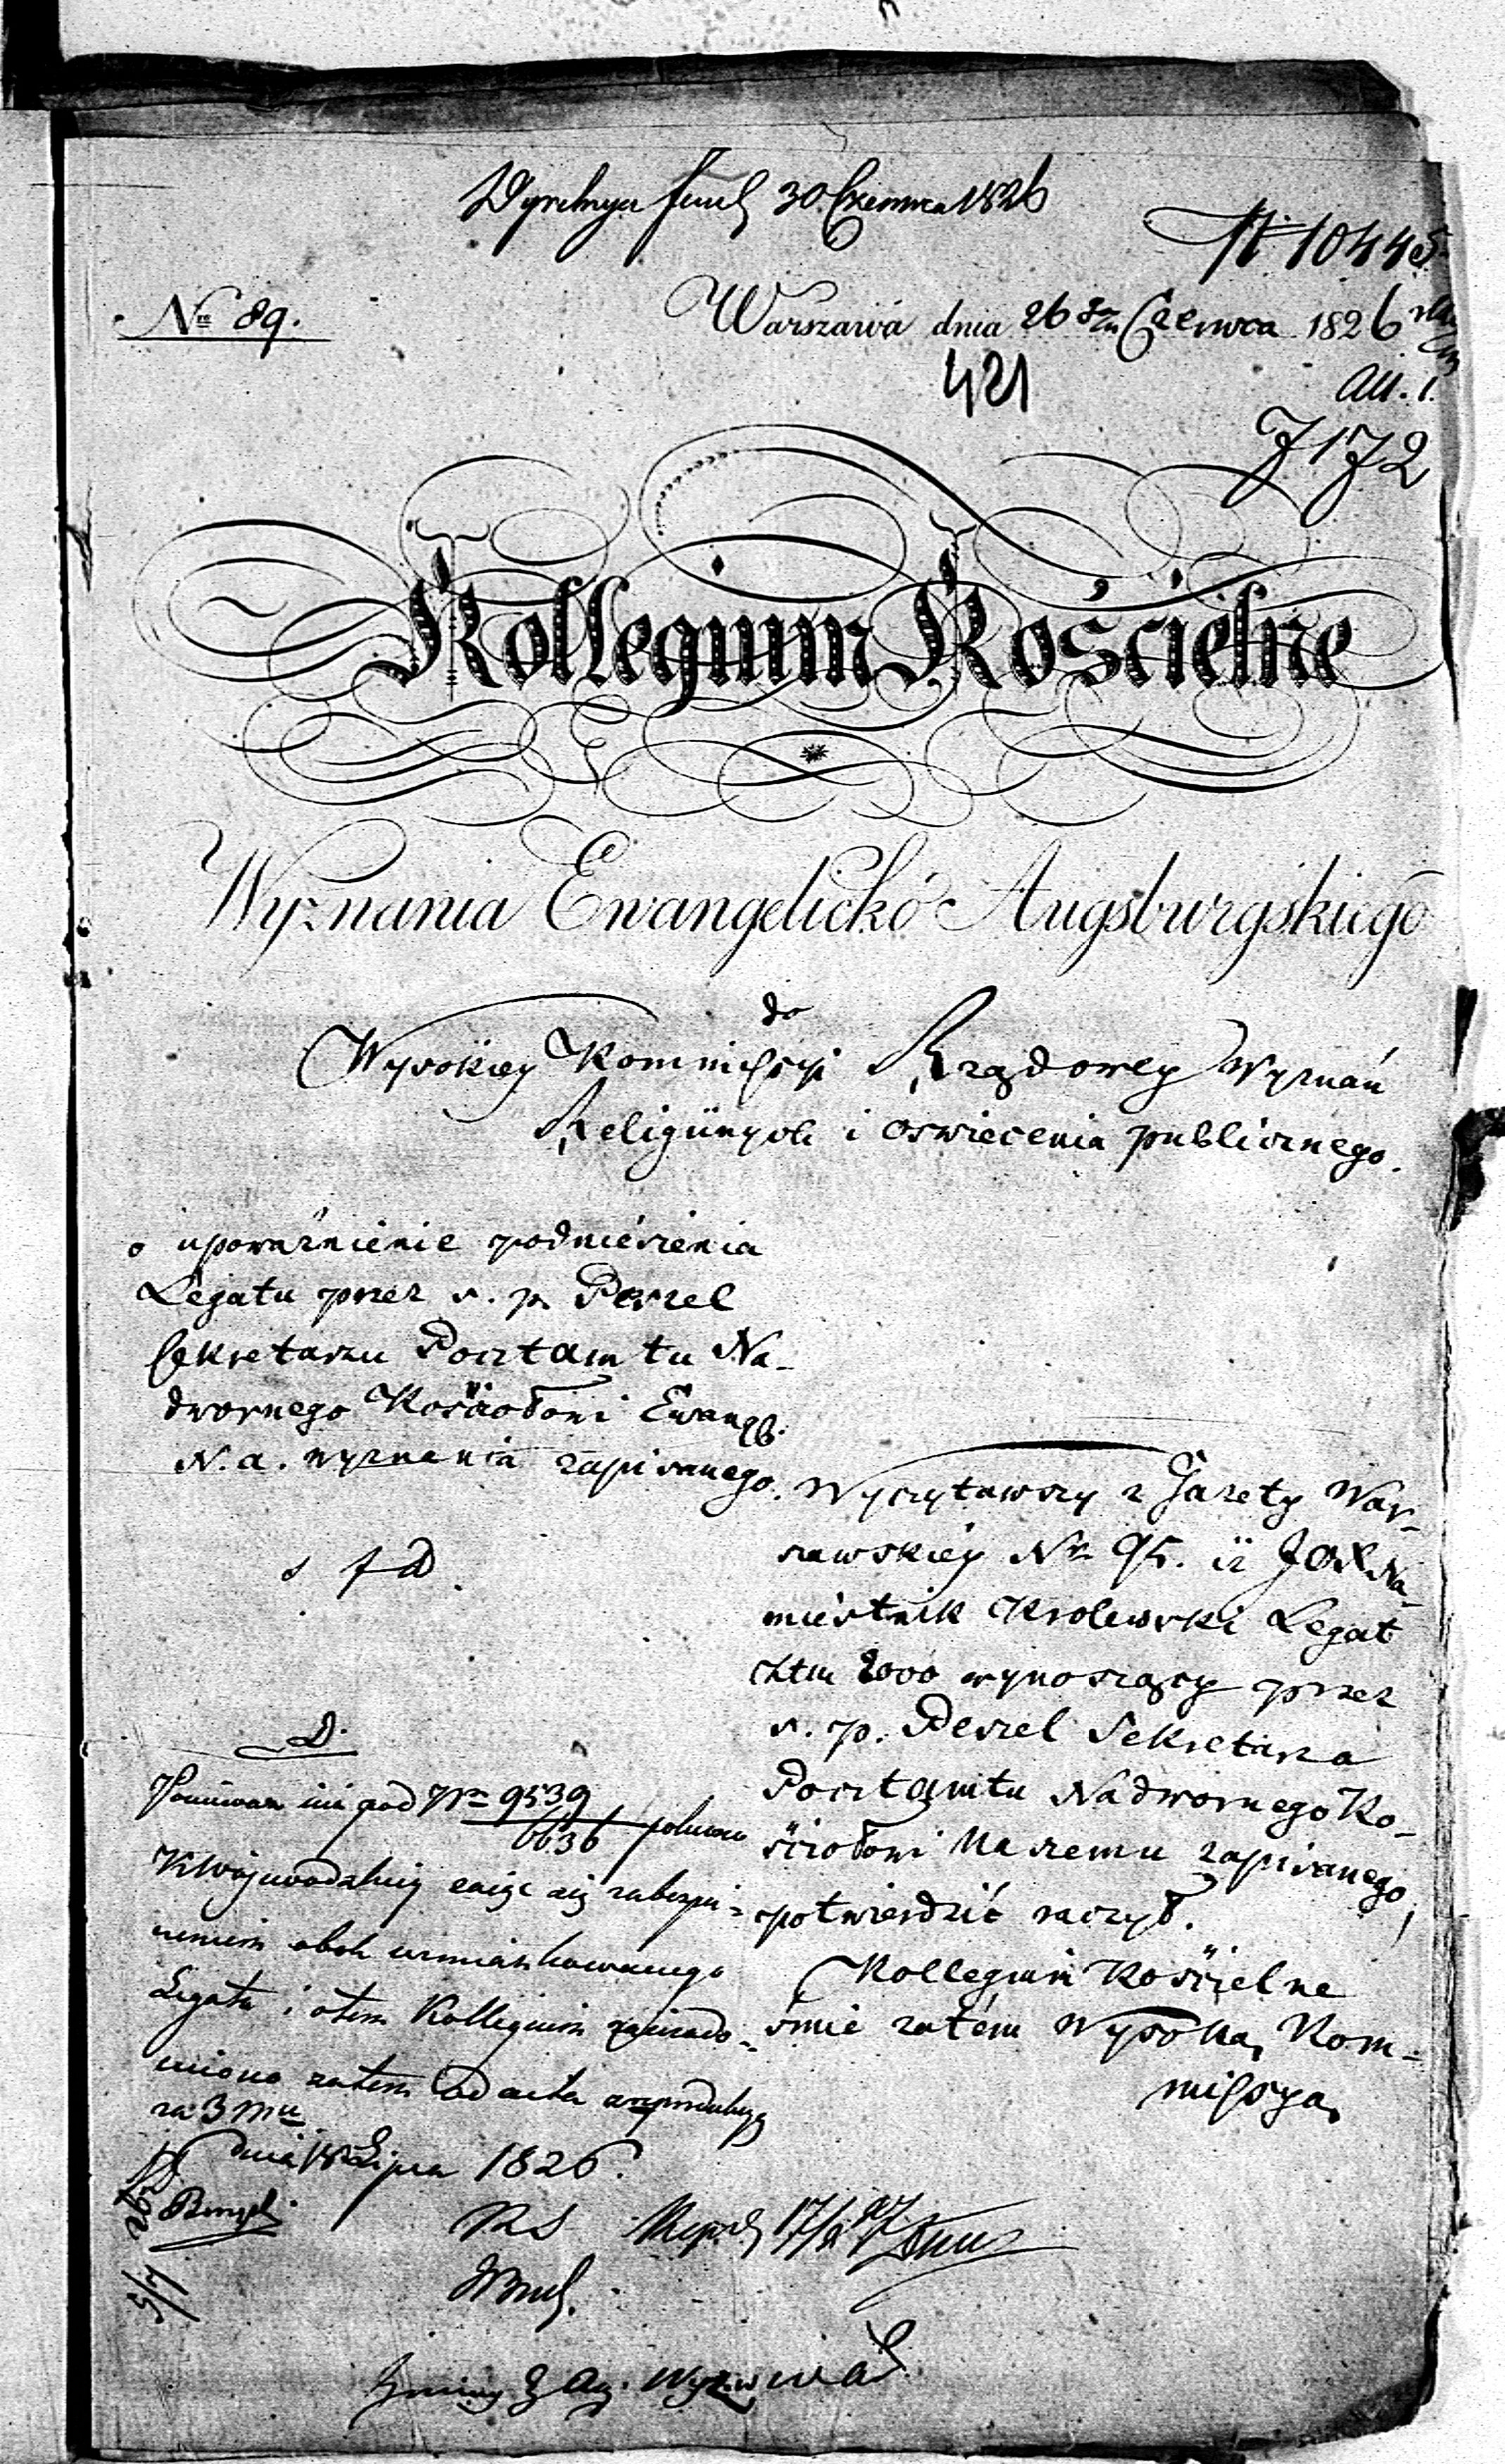 30 Czerwca 1826
N 10445
Nro 89.
Warszawa dnia 26 Czerwca 1826
421
All. 1.
7172
Kollegium Kościelne
Wyznania Ewangelicko Augsburgskiego
do
Wysokiey Kommissyi Rządowey Wyznań
Religiinych i oswiecenia publicznego.
o upoważnienie podniesienia
Legatu przez s. p. Peszel
Sekretarza Pocztamtu Na-
dwornego Kościołowi Ewang.
N. a. wyznania zapisanego.
Wyczytawszy z Gazety War-
szawskiey Nr 95. iż JOX Na-
miestnik Krolewski Legat
Ztm 2000 wynoszący przez
s. p. Peszel Sekretarza
Pocztamtu Nadwornego Ko-
ściołowi Naszemu zapisanego,
potwierdzić raczył.
Kollegium Kościelne
śmie zatém Wysoką Kom-
missyą
D.
Ponieważ iuż pod Nr 9539
6636 polecono
K Wojewodzkiey zaiąc się zabezpie-
czeniem obok wzmiankowanego
Legatu i otem Kollegium zawiado-
miono zatem ad acta
za 3 
dnia 18 Lipca 1826.
5/7